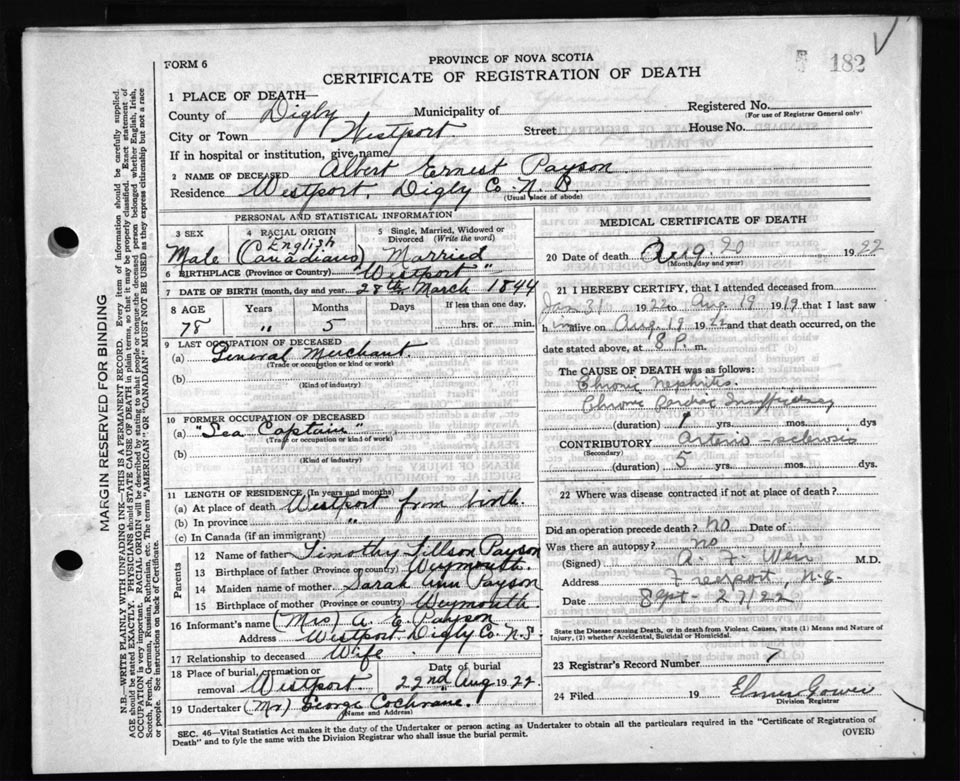 182
FORM 6
PROVINCE OF NOVA SCOTIA
CERTIFICATE OF REGISTRATION OF DEATH
MARGIN RESERVED FOR BINDING
N.B.—WRITE PLAINLY WITH UNFADING INK—THIS IS A PERMANENT RECORD. Every item of information should be carefully supplied.
AGE should be stated EXACTLY. PHYSICIANS should STATE CAUSE OF DEATH in plain terms, so that it may be properly classified. Exact statement of
OCCUPATION is very important. RACIAL ORIGIN will be described by stating to what people or tongue the deceased person belonged whether English, Irish,
Scotch, French, German, Russian, Ruthenian, etc. The terms "AMERICAN" OR "CANADIAN" MUST NOT BE USED as they express citizenship but not a race
or people. See instructions on back of Certificate.
1 PLACE OF DEATH—
County of Digby Municipality of Registered No.
(For use of Registrar General only)
City or Town Westport Street House No.
If in hospital or institution, give name
2 NAME OF DECEASED Albert Ernest Payson
Residence Westport, Digby Co. N. B.
(Usual place of abode)
PERSONAL AND STATISTICAL INFORMATION
3 SEX 4 RACIAL ORIGIN 5 Single, Married, Widowed or Divorced (Write the word)
Male English (Canadians) Married
6 BIRTHPLACE (Province or Country) "Westport"
7 DATE OF BIRTH (month, day and year) 28th March 1844
8 AGE Years Months If less than one day,
78 " 5 hrs. or min.
9 LAST OCCUPATION OF DECEASED
(a) General Merchant
(Trade or occupation or kind of work)
(b)
(Kind of industry)
10 FORMER OCCUPATION OF DECEASED
(a) "Sea Captain"
(Trade or occupation or kind of work)
(b)
(Kind of industry)
11 LENGTH OF RESIDENCE (In years and months)
(a) At place of death Westport from birth.
(b) In province "
(c) In Canada (if an immigrant)
Parents
12 Name of father Timothy Tillson Payson
13 Birthplace of father (Province or country) Weymouth.
14 Maiden name of mother Sarah Ann Payson
15 Birthplace of mother (Province or country) Weymouth.
16 Informant's name (Mrs) A. E. Payson
Address Westport Digby Co. N. S.
17 Relationship to deceased Wife
18 Place of burial, cremation or removal Westport. Date of burial 22nd Aug. 1922.
19 Undertaker (Mr) George Cochrane.
(Name and Address)
MEDICAL CERTIFICATE OF DEATH
20 Date of death Aug. 20 1922
(Month, day and year)
21 I HEREBY CERTIFY, that I attended deceased from
Jan 31 1922 to Aug 19 1919 that I last saw
h im alive on Aug. 19 1922 and that death occurred, on the
date stated above, at 8 P. m.
The CAUSE OF DEATH was as follows:
Chronic Nephritis.
Chronic Cardiac Insufficiency
(duration) yrs. mos. dys
CONTRIBUTORY arterio-sclerosis
(Secondary)
(duration) 5 yrs. mos. dys.
22 Where was disease contracted if not at place of death?
Did an operation precede death? no Date of
Was there an autopsy? no
(Signed) A. F. Weir M.D.
Address Freeport, N.S.
Date Sept - 27/22
State the Disease causing Death, or in death from Violent Causes, state (1) Means and Nature of
Injury, (2) whether Accidental, Suicidal or Homicidal.
23 Registrar's Record Number 7
24 Filed 19 Elmer Gower
Division Registrar
SEC. 46—Vital Statistics Act makes it the duty of the Undertaker or person acting as Undertaker to obtain all the particulars required in the "Certificate of Registration of
Death" and to fyle the same with the Division Registrar who shall issue the burial permit. (OVER)